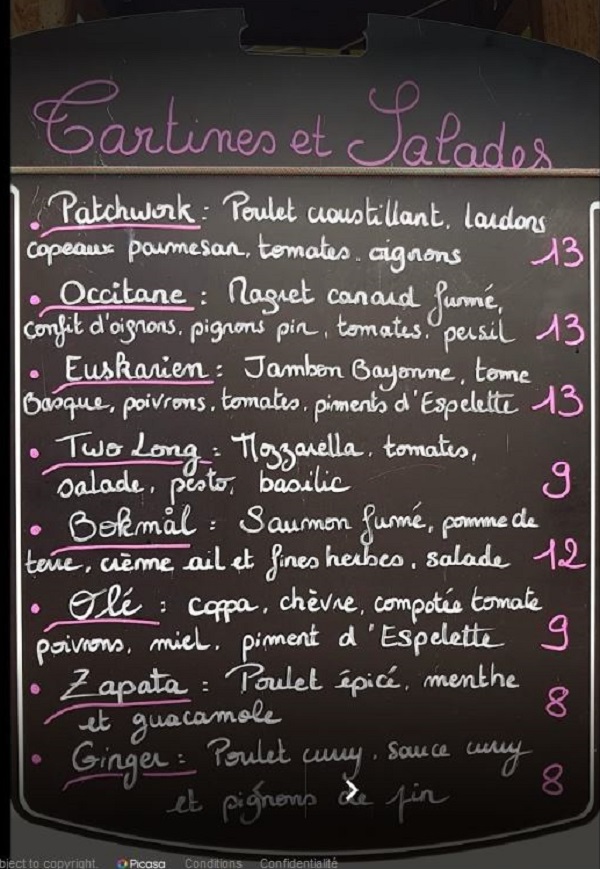 Tartines et Salades
• Patchwork : Poulet croustillant, lardons
copeaux parmesan, tomates, oignons 13
• Occitane : Magret canard fumé,
confit d'oignons, pignons pin, tomates, persil 13
• Euskarien : Jambon Bayonne, tome
Basque, poivrons, tomates, piments d'Espelette 13
• Two Long : Mozzarella, tomates,
salade, pesto, basilic 9
• Bokmål : Saumon fumé, pomme de
terre, crème ail et fines herbes, salade 12
• Olé : coppa, chèvre, compotée tomate
poivrons, miel, piment d'Espelette 9
• Zapata : Poulet épicé, menthe
et guacamole 8
• Ginger : Poulet curry, sauce curry
et pignons de pin 8
bject to copyright. Picasa Conditions Confidentialité